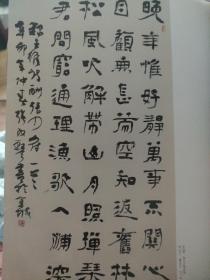 晚年惟好靜萬事不關心
自顧無長策空知返舊林
松風吹解帶山月照彈琴
君問窮通理漁歌入浦深
王維詩酬張少府一首
辛卯年仲春張改琴書於京